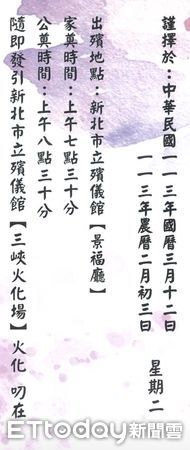 謹擇於：中華民國一一三年國曆三月十二日
一一三年農曆二月初三日
星期二
出殯地點：新北市立殯儀館【景福廳】
家奠時間：上午七點三十分
公奠時間：上午八點三十分
隨即發引新北市立殯儀館【三峽火化場】火化 叨在
ETtoday新聞雲